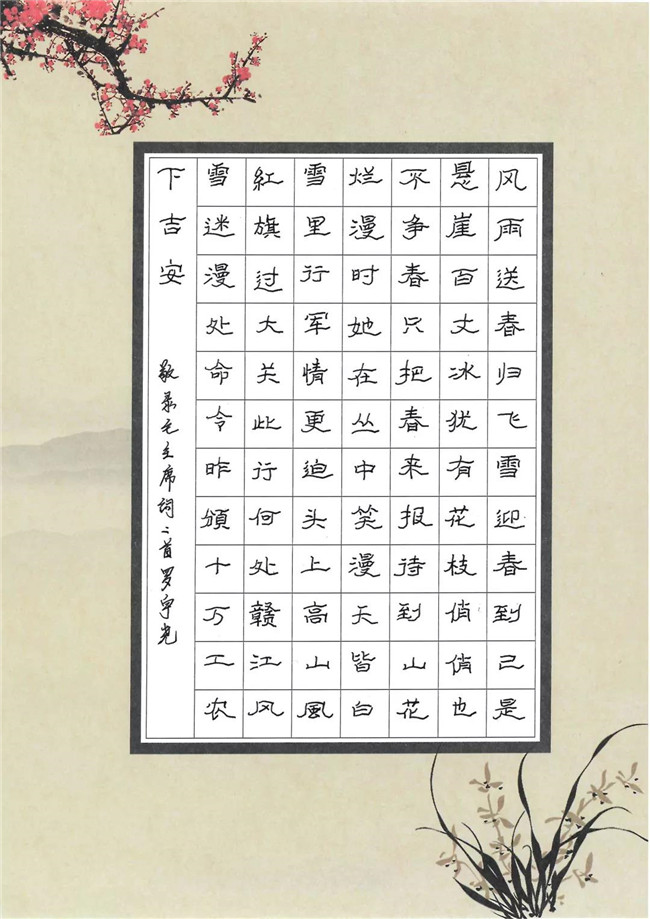 风雨送春归飞雪迎春到已是
悬崖百丈冰犹有花枝俏俏也
不争春只把春来报待到山花
烂漫时她在丛中笑漫天皆白
雪里行军情更迫头上高山風
紅旗过大关此行何处赣江风
雪迷漫处命令昨頒十万工农
下吉安 敬录毛主席词二首